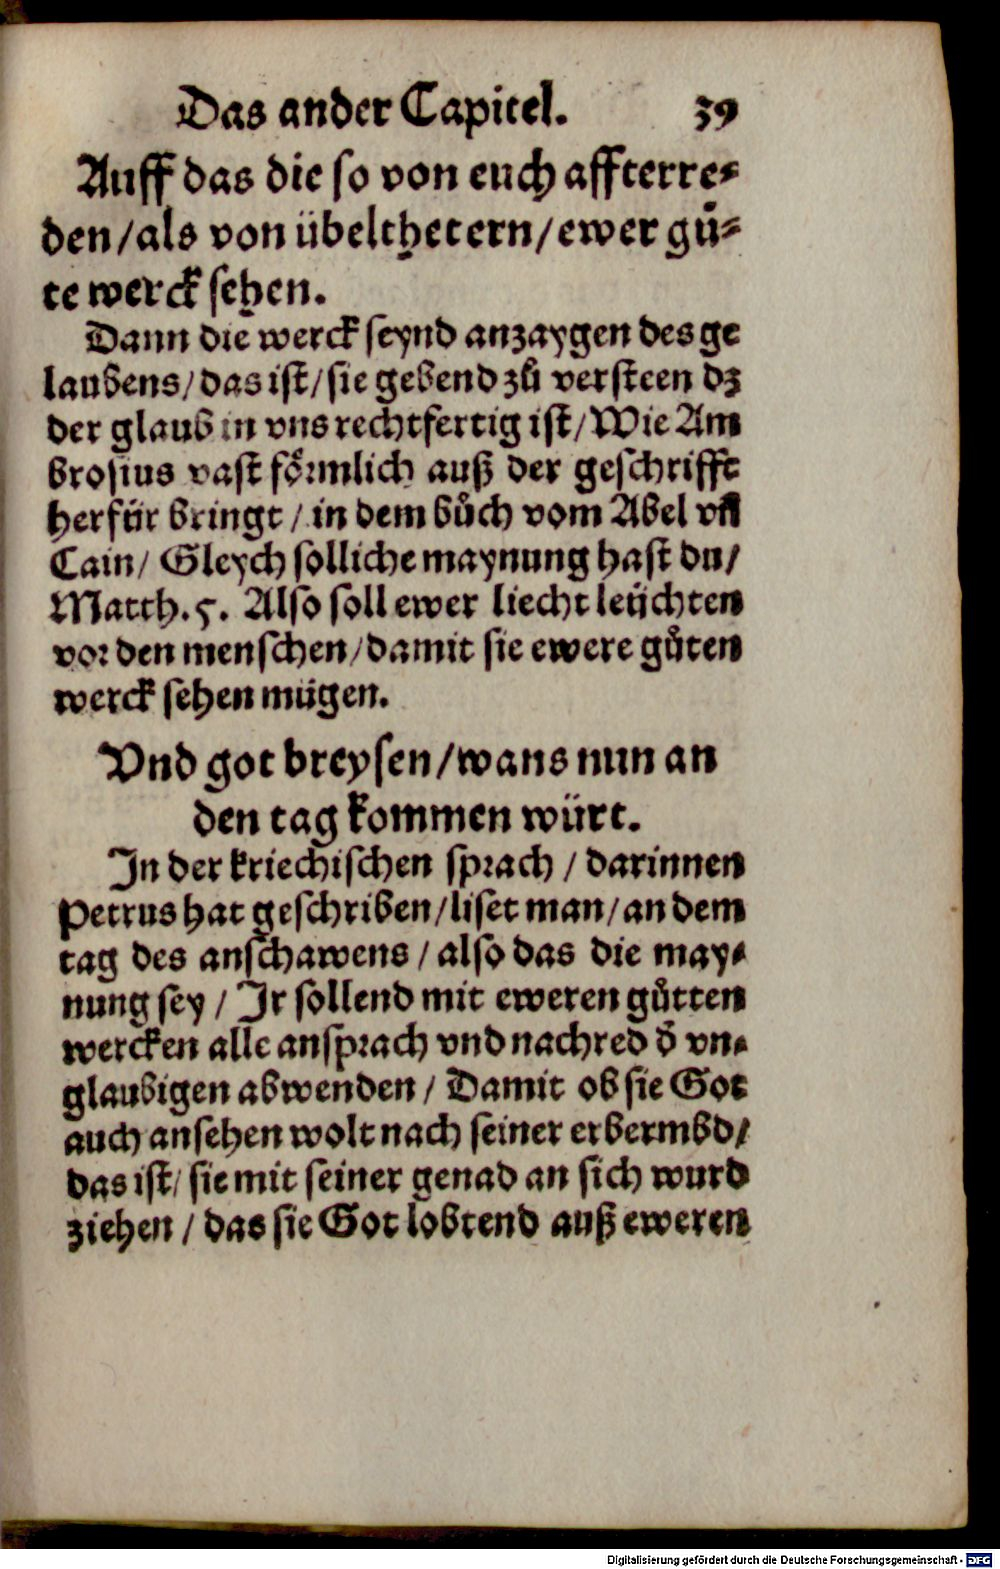 Das ander Capitel. 39
Auff das die so von euch affterre⸗
den/als von übelthetern/ewer gů⸗
te werck sehen.
Dann die werck seynd anzaygen des ge
laubens/das ist/sie gebend zů versteen dz
der glaub in vns rechtfertig ist/Wie Am
brosius vast förmlich auß der geschrifft
herfür bringt/in dem bůch vom Abel vñ
Cain/Gleych solliche maynung hast du/
Matth.5. Also soll ewer liecht leüchten
vor den menschen/damit sie ewere gůten
werck sehen mügen.
Vnd got breysen/wans nun an
den tag kommen würt.
In der kriechischen sprach/darinnen
Petrus hat geschriben/liset man/an dem
tag des anschawens/also das die may⸗
nung sey/Ir sollend mit eweren gůtten
wercken alle ansprach vnd nachred ð vn⸗
glaubigen abwenden/Damit ob sie Got
auch ansehen wolt nach seiner erbermbd/
das ist/sie mit seiner genad an sich wurd
ziehen/das sie Got lobtend auß eweren
Digitalisierung gefördert durch die Deutsche Forschungsgemeinschaft - DFG